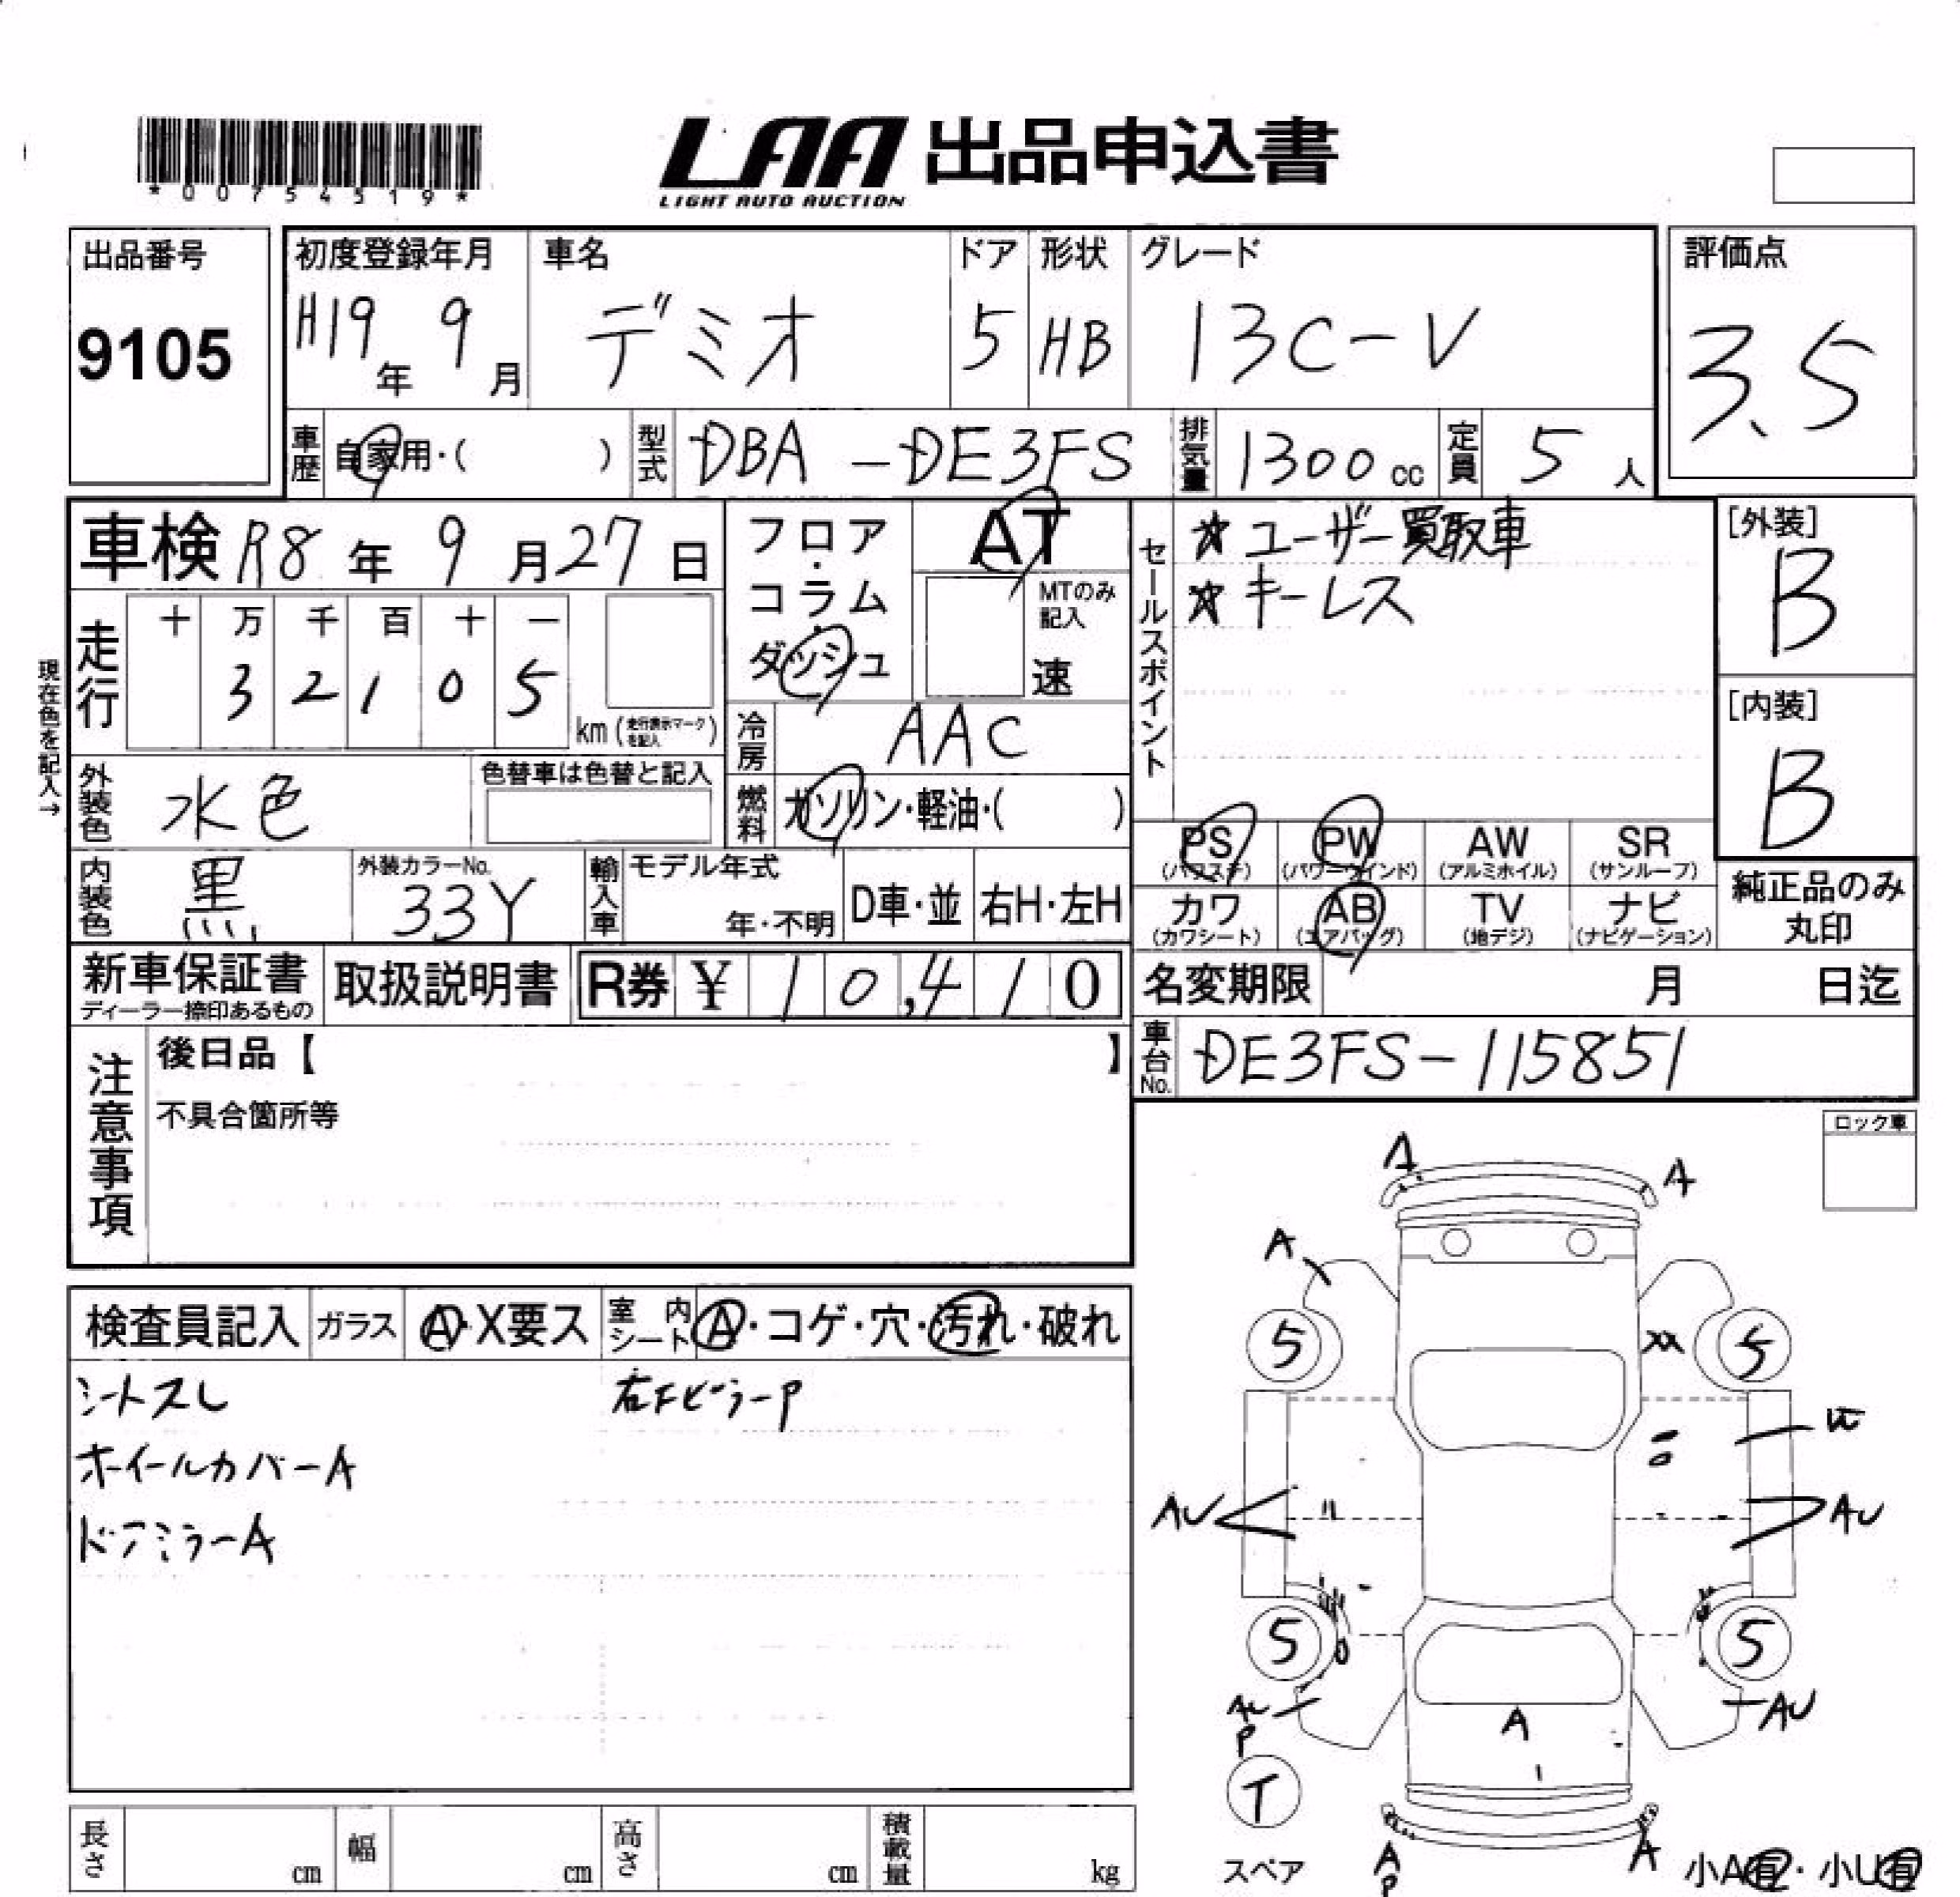 *00754519*
LAA 出品申込書
LIGHT AUTO AUCTION
出品番号
9105
初度登録年月
H19年 9月
車名
デミオ
ドア
5
形状
HB
グレード
13C-V
評価点
3.5
車歴
自家用・( )
型式
DBA-DE3FS
排気量
1300cc
定員
5人
車検 R8年 9月27日
フロア・コラム・ダッシュ
AT
MTのみ記入
速
セールスポイント
☆ユーザー買取車
☆キーレス
[外装]
B
[内装]
B
現在色を記入→
走行
十 万 千 百 十 一
3 2 1 0 5
km(走行表示マークを記入)
冷房
AAC
外装色
水色
色替車は色替と記入
燃料
ガソリン・軽油・( )
PS
(パワステ)
PW
(パワーウインド)
AW
(アルミホイル)
SR
(サンルーフ)
内装色
黒
外装カラーNo.
33Y
輸入車
モデル年式
年・不明
D車・並
右H・左H
カワ
(カワシート)
AB
(エアバッグ)
TV
(地デジ)
ナビ
(ナビゲーション)
純正品のみ
丸印
新車保証書
ディーラー捺印あるもの
取扱説明書
R券 ¥ 10,410
名変期限 月 日迄
車台No.
DE3FS-115851
注意事項
後日品【 】
不具合箇所等
ロック車
検査員記入
ガラス
A・X要ス
室内シート
A・コゲ・穴・汚れ・破れ
シートスレ
右FピラーP
ホイールカバーA
ドアミラーA
A
A
A
5
XX
5
AU
AU
5
5
AU
P
AU
A
T
スペア
A
P
A
小A有・小U有
長さ cm
幅 cm
高さ cm
積載量 kg